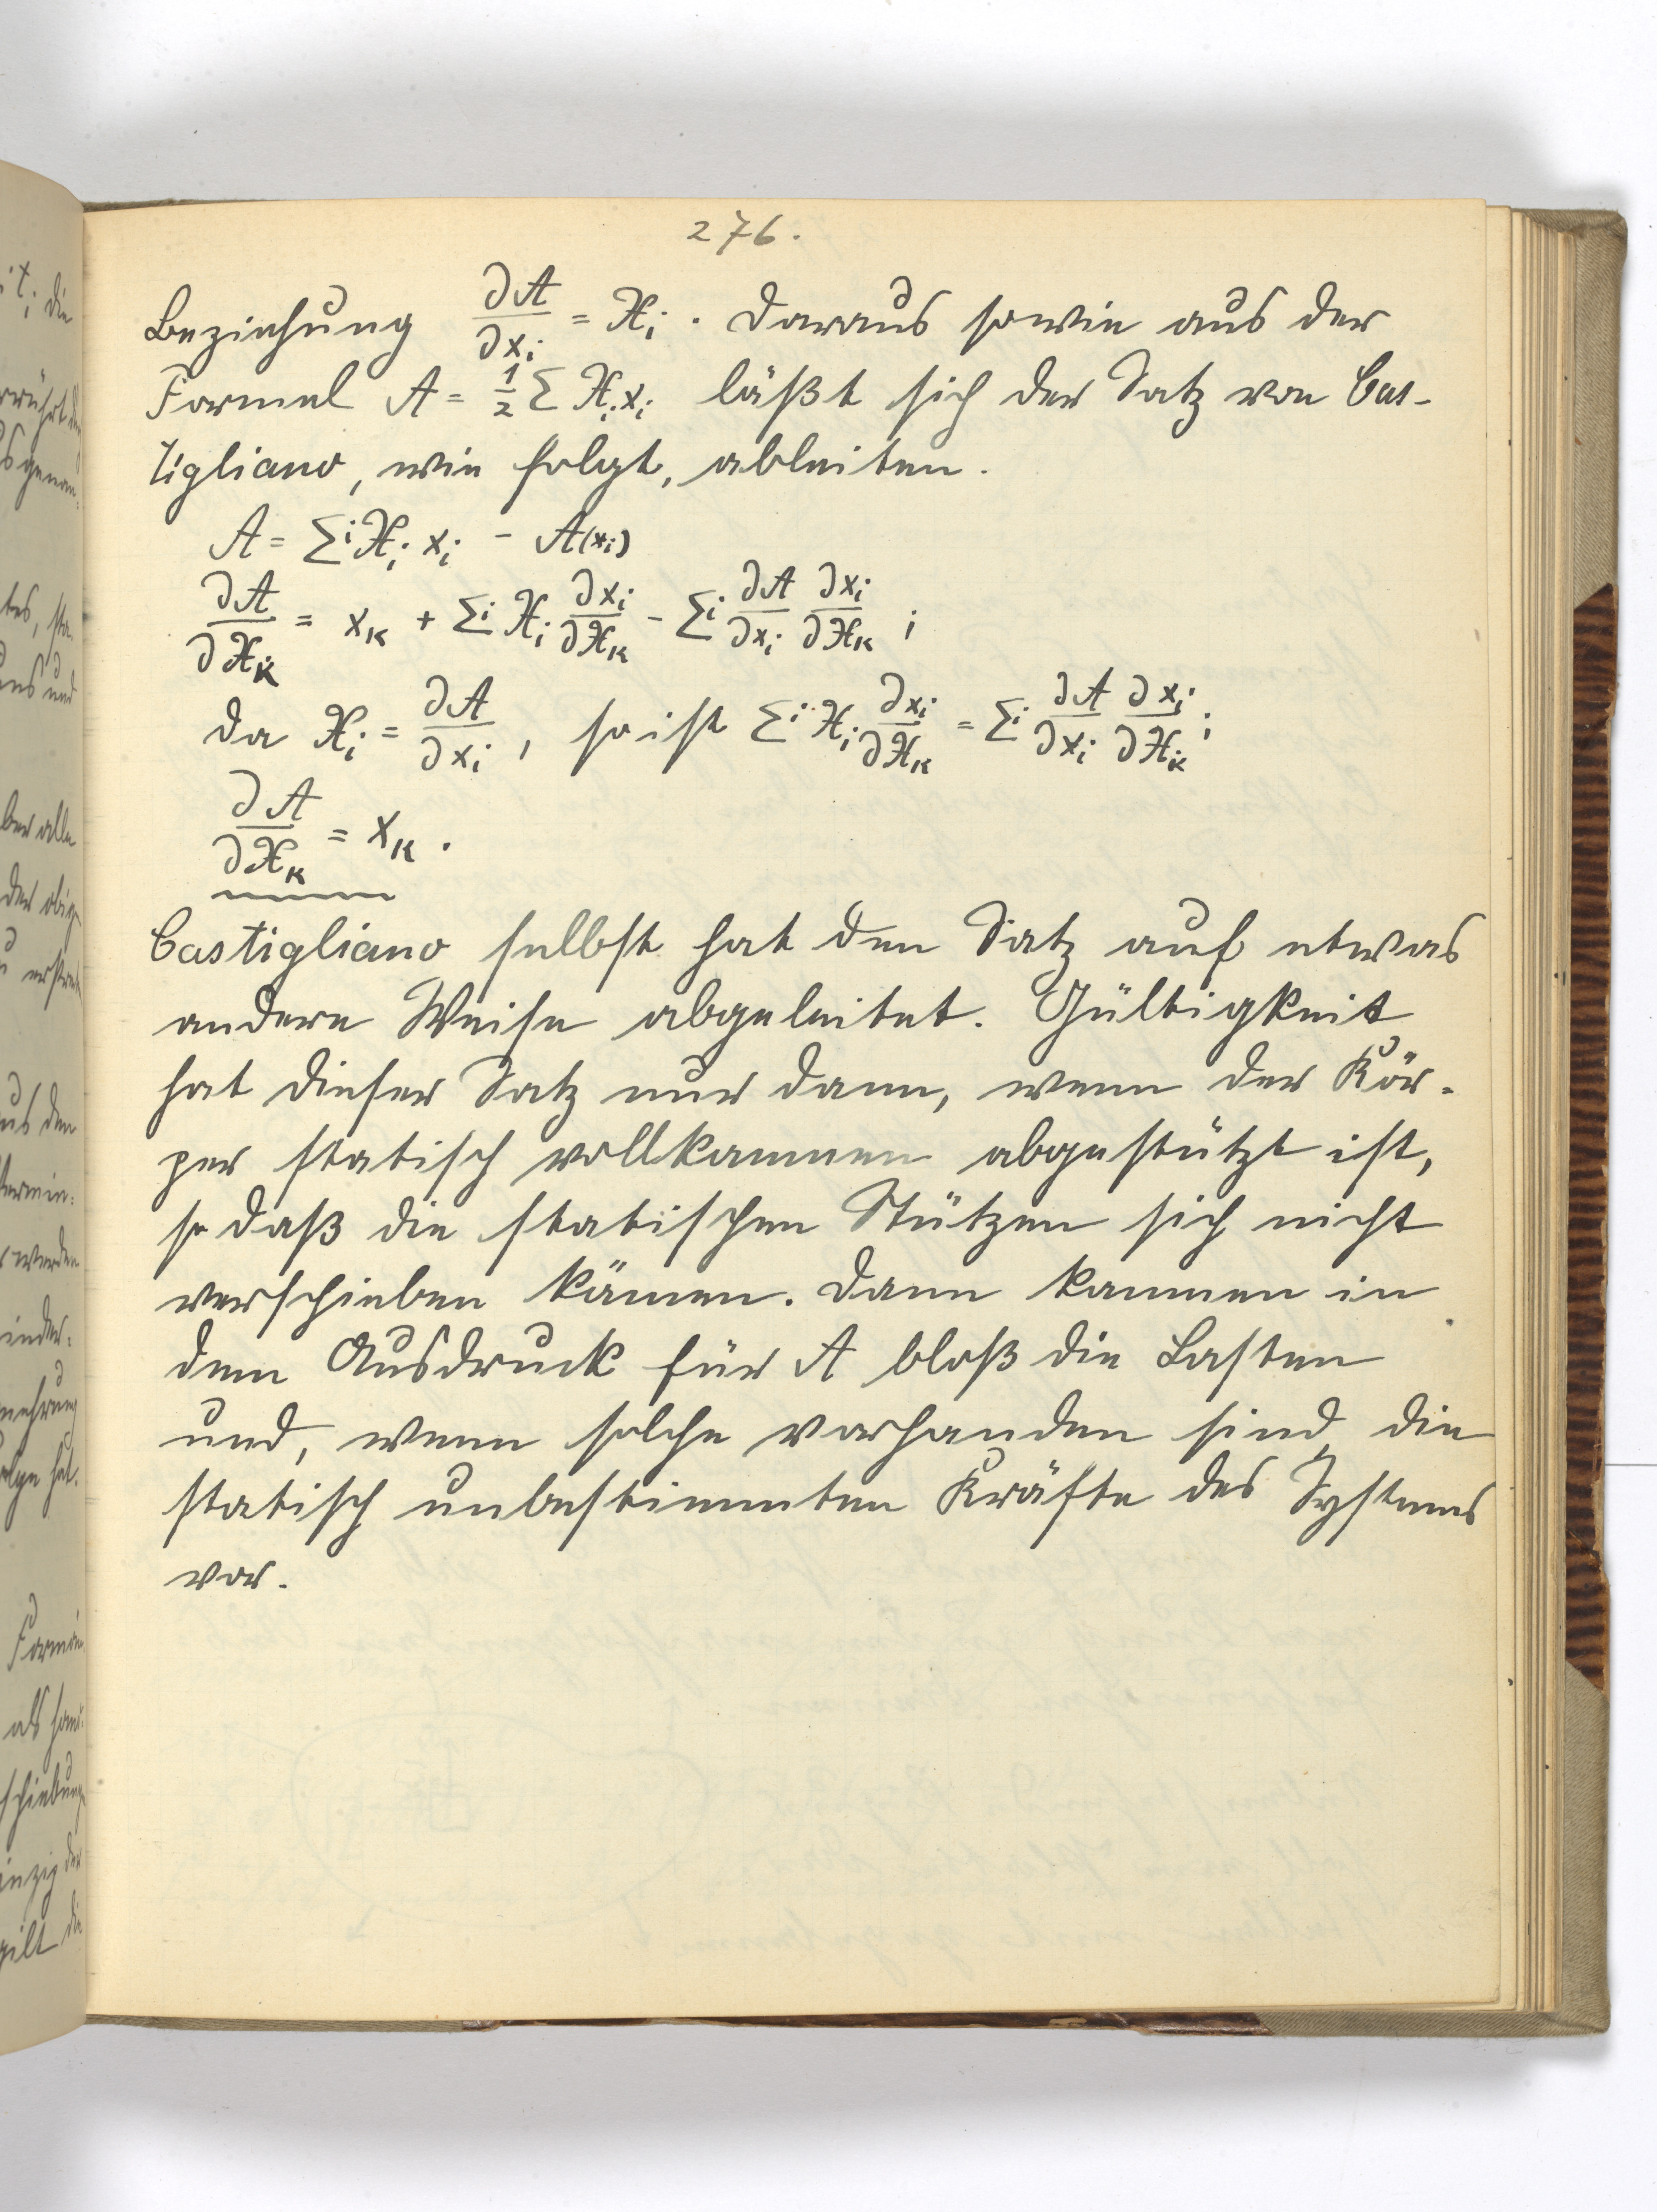 276.
Beziehung ∂A/∂xᵢ = Xᵢ. Daraus sowie aus der
Formel A = ½ Σ Xᵢ xᵢ läßt sich der Satz von Cas-
tigliano, wie folgt, ableiten.
A = Σⁱ Xᵢ xᵢ - A(xᵢ)
∂A/∂X_K = x_K + Σⁱ Xᵢ ∂xᵢ/∂X_K - Σⁱ ∂A/∂xᵢ ∂xᵢ/∂X_K ;
da Xᵢ = ∂A/∂xᵢ, so ist Σⁱ Xᵢ ∂xᵢ/∂X_K = Σⁱ ∂A/∂xᵢ ∂xᵢ/∂X_K ;
∂A/∂X_K = x_K.
Castigliano selbst hat den Satz auf etwas
andere Weise abgeleitet. Gültigkeit
hat dieser Satz nur dann, wenn der Kör-
per statisch vollkommen abgestützt ist,
so daß die statischen Stützen sich nicht
verschieben können. Dann kommen in
dem Ausdruck für A bloß die Lasten
und, wenn solche vorhanden sind, die
statisch unbestimmten Kräfte des Systems
vor.